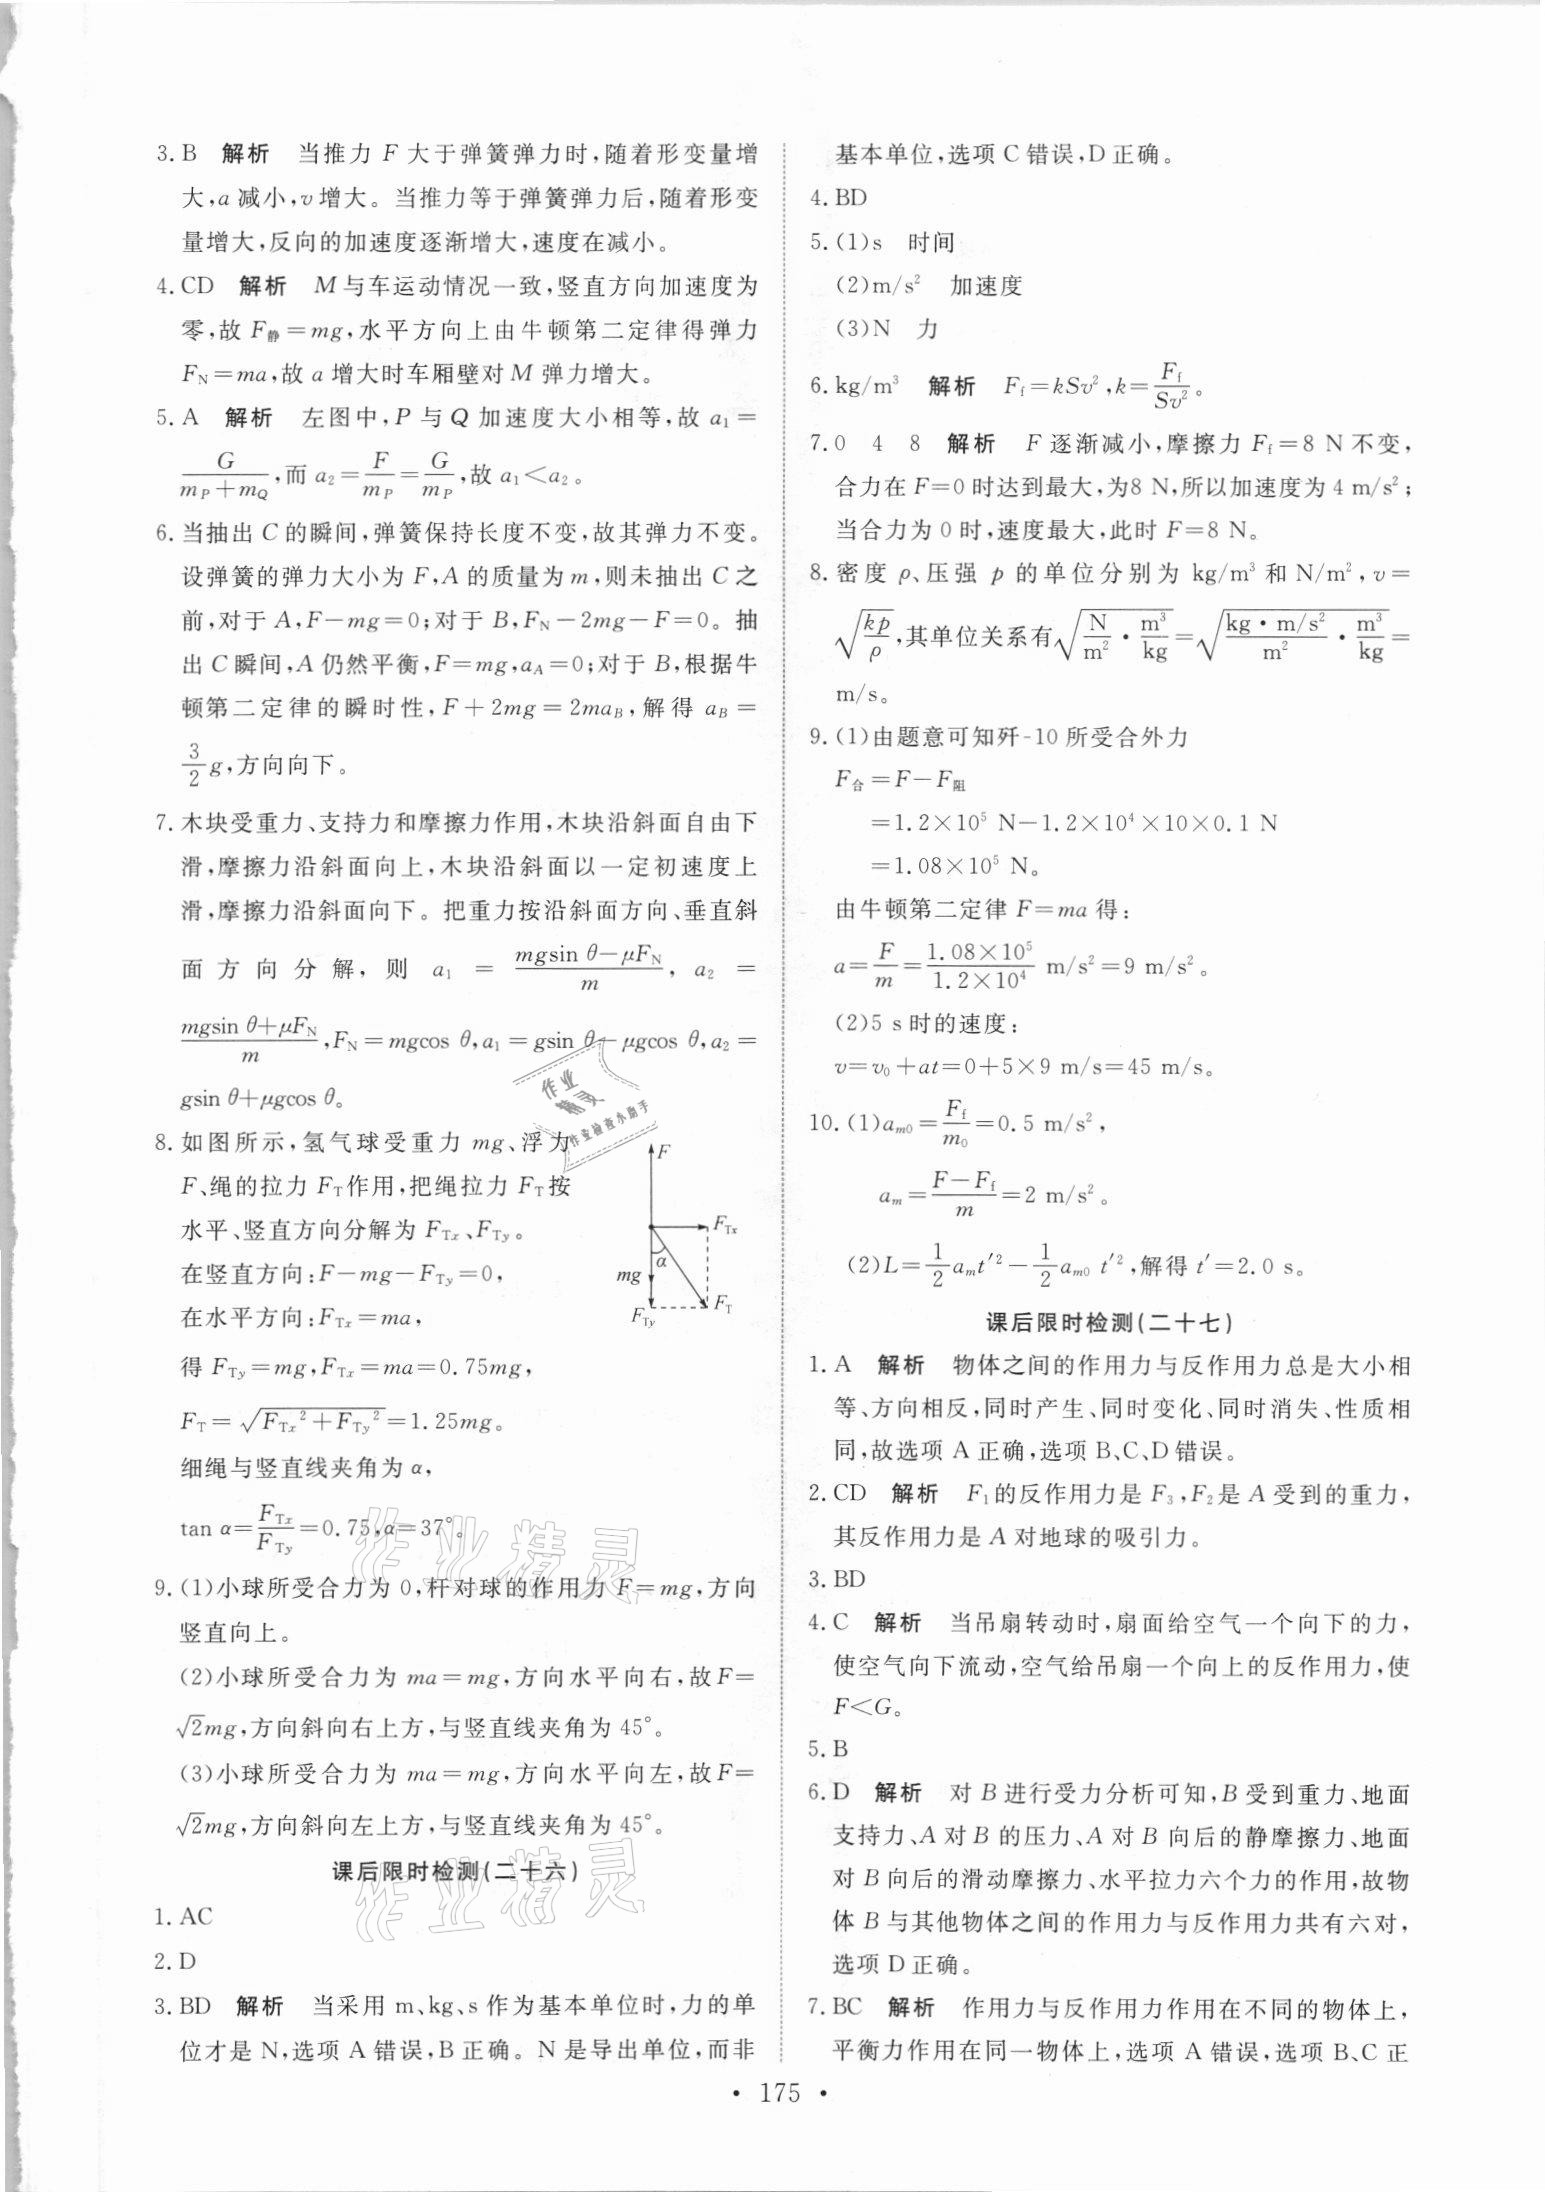 3. B 解析 当推力 F 大于弹簧弹力时,随着形变量增
大,a 减小,v 增大。当推力等于弹簧弹力后,随着形变
量增大,反向的加速度逐渐增大,速度在减小。
4. CD 解析 M 与车运动情况一致,竖直方向加速度为
零,故 F静=mg,水平方向上由牛顿第二定律得弹力
F_N=ma,故 a 增大时车厢壁对 M 弹力增大。
5. A 解析 左图中,P 与 Q 加速度大小相等,故 a₁=
G/(m_P+m_Q),而 a₂=F/m_P=G/m_P,故 a₁<a₂。
6. 当抽出 C 的瞬间,弹簧保持长度不变,故其弹力不变。
设弹簧的弹力大小为 F,A 的质量为 m,则未抽出 C 之
前,对于 A,F-mg=0;对于 B,F_N-2mg-F=0。抽
出 C 瞬间,A 仍然平衡,F=mg,a_A=0;对于 B,根据牛
顿第二定律的瞬时性,F+2mg=2ma_B,解得 a_B=
3/2 g,方向向下。
7. 木块受重力、支持力和摩擦力作用,木块沿斜面自由下
滑,摩擦力沿斜面向上,木块沿斜面以一定初速度上
滑,摩擦力沿斜面向下。把重力按沿斜面方向、垂直斜
面方向分解,则 a₁=(mgsin θ-μF_N)/m, a₂=
(mgsin θ+μF_N)/m,F_N=mgcos θ,a₁=gsin θ-μgcos θ,a₂=
gsin θ+μgcos θ。
8. 如图所示,氢气球受重力 mg、浮力
F、绳的拉力 F_T作用,把绳拉力 F_T按
水平、竖直方向分解为 F_Tx、F_Ty。
在竖直方向:F-mg-F_Ty=0,
在水平方向:F_Tx=ma,
得 F_Ty=mg,F_Tx=ma=0.75mg,
F_T=√(F_Tx²+F_Ty²)=1.25mg。
细绳与竖直线夹角为 α,
tan α=F_Tx/F_Ty=0.75,α=37°。
F
F_Tx
α
mg
F_Ty
F_T
9. (1)小球所受合力为 0,杆对球的作用力 F=mg,方向
竖直向上。
(2)小球所受合力为 ma=mg,方向水平向右,故 F=
√2mg,方向斜向右上方,与竖直线夹角为 45°。
(3)小球所受合力为 ma=mg,方向水平向左,故 F=
√2mg,方向斜向左上方,与竖直线夹角为 45°。
课后限时检测(二十六)
1. AC
2. D
3. BD 解析 当采用 m、kg、s 作为基本单位时,力的单
位才是 N,选项 A 错误,B 正确。N 是导出单位,而非
基本单位,选项 C 错误,D 正确。
4. BD
5. (1)s 时间
(2)m/s² 加速度
(3)N 力
6. kg/m³ 解析 F_f=kSv²,k=F_f/Sv²。
7. 0 4 8 解析 F 逐渐减小,摩擦力 F_f=8 N 不变,
合力在 F=0 时达到最大,为8 N,所以加速度为 4 m/s²;
当合力为 0 时,速度最大,此时 F=8 N。
8. 密度 ρ、压强 p 的单位分别为 kg/m³ 和 N/m²,v=
√(kp/ρ),其单位关系有√(N/m²·m³/kg)=√((kg·m/s²)/m²·m³/kg)=
m/s。
9. (1)由题意可知歼-10 所受合外力
F合=F-F阻
=1.2×10⁵ N-1.2×10⁴×10×0.1 N
=1.08×10⁵ N。
由牛顿第二定律 F=ma 得:
a=F/m=(1.08×10⁵)/(1.2×10⁴) m/s²=9 m/s²。
(2)5 s 时的速度:
v=v₀+at=0+5×9 m/s=45 m/s。
10. (1)a_m0=F_f/m₀=0.5 m/s²,
a_m=(F-F_f)/m=2 m/s²。
(2)L=1/2 a_m t′²-1/2 a_m0 t′²,解得 t′=2.0 s。
课后限时检测(二十七)
1. A 解析 物体之间的作用力与反作用力总是大小相
等、方向相反,同时产生、同时变化、同时消失、性质相
同,故选项 A 正确,选项 B、C、D 错误。
2. CD 解析 F₁的反作用力是 F₃,F₂是 A 受到的重力,
其反作用力是 A 对地球的吸引力。
3. BD
4. C 解析 当吊扇转动时,扇面给空气一个向下的力,
使空气向下流动,空气给吊扇一个向上的反作用力,使
F<G。
5. B
6. D 解析 对 B 进行受力分析可知,B 受到重力、地面
支持力、A 对 B 的压力、A 对 B 向后的静摩擦力、地面
对 B 向后的滑动摩擦力、水平拉力六个力的作用,故物
体 B 与其他物体之间的作用力与反作用力共有六对,
选项 D 正确。
7. BC 解析 作用力与反作用力作用在不同的物体上,
平衡力作用在同一物体上,选项 A 错误,选项 B、C 正
• 175 •
作业
精灵
作业检查小助手
作业精灵
作业精灵